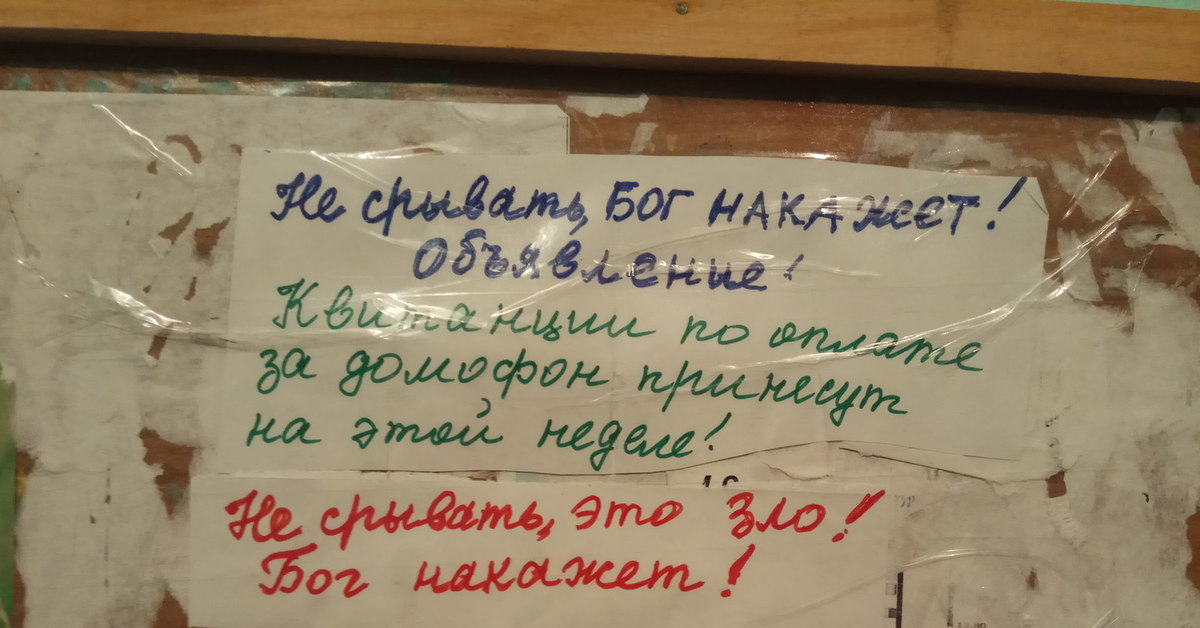 Не срывать, БОГ НАКАЖЕТ!
Объявление!
Квитанции по оплате
за домофон принесут
на этой неделе!
Не срывать, это Зло!
Бог накажет!